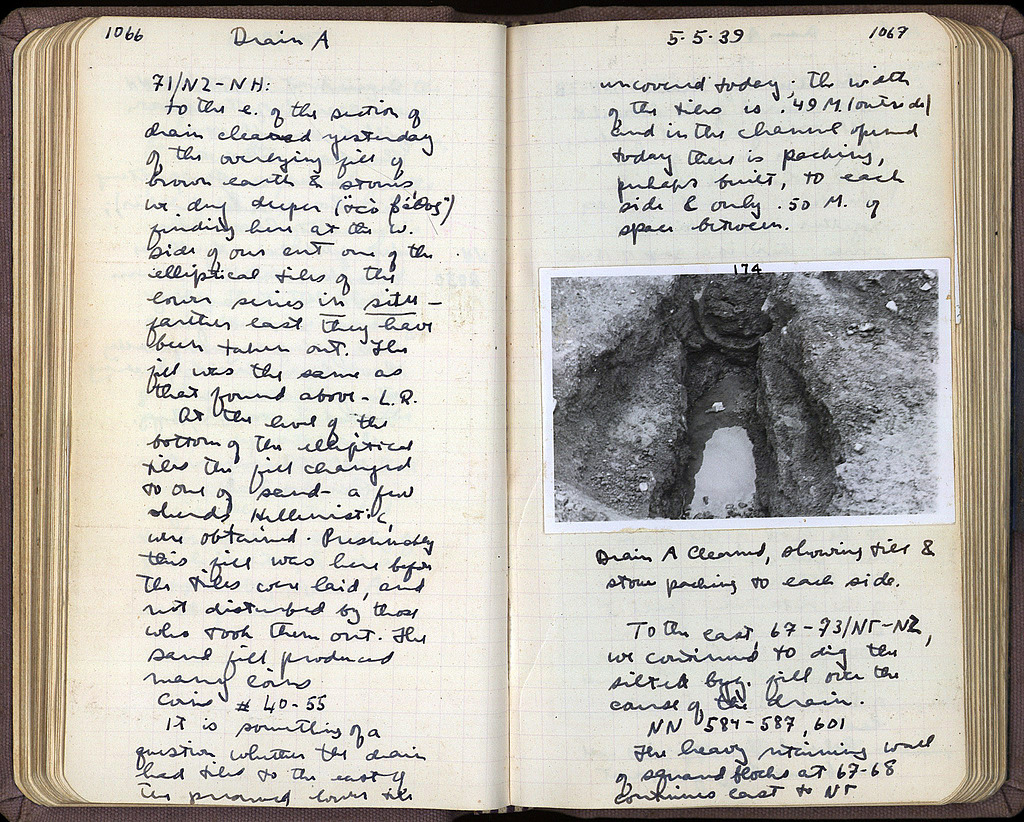 1066
Drain A
71/NZ-NH:
To the e. of the section of
drain cleared yesterday
of the overlying fill of
brown earth & stones,
we dug deeper
finding here at the w.
side of our cut one of the
elliptical tiles of the
lower series in situ –
farther east they have
been taken out. The
fill was the same as
that found above – L.R.
At the level of the
bottom of the elliptical
tiles the fill changed
to one of sand – a few
sherds, Hellenistic,
were obtained. Presumably
this fill was here before
the tiles were laid, and
not disturbed by those
who took them out. The
sand fill produced
many coins
Coins # 40-55
It is something of a
question whether the drain
had tiles to the east of
the preserved lower tile
5·5·39
1067
uncovered today; the width
of the tiles is .49 M. (outside)
and in the channel opened
today there is packing,
perhaps built, to each
side & only .50 M. of
space between.
174
Drain A Cleaned, showing tile &
stone packing to each side.
To the east, 67-73/NΓ-NZ,
we continued to dig the
silted byz. fill over the
course of the drain.
NN 584-587, 601
The heavy retaining wall
of squared blocks at 67-68
continues east to NΓ